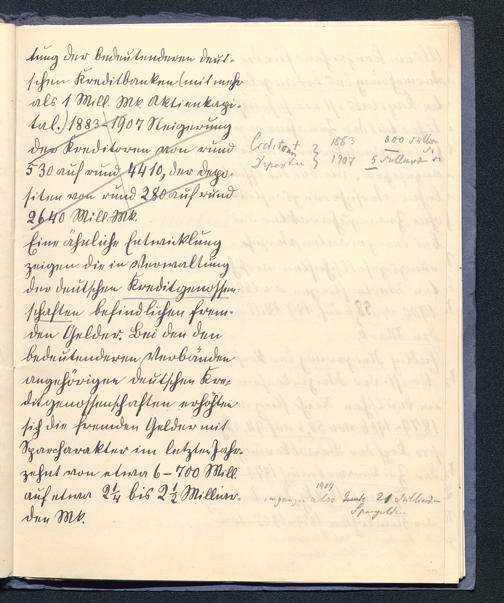 tung der bedeutenderen deut-
schen Kreditbanken (mit mehr
als 1 Mill. Mk Aktienkapi-
tal.) 1883-1907 Steigerung
der Kreditoren von rund
530 auf rund 4410, der Depo-
siten von rund 280 auf rund
2640 Mill. Mk.
Kreditoren 1883 800 Million
Depositen 1907 5 Milliarden
Eine ähnliche Entwicklung
zeigen die in Verwaltung
der deutschen Kreditgenossen-
schaften befindlichen frem-
den Gelder. Bei den den
bedeutenderen Verbänden
angehörigen deutschen Kre-
ditgenossenschaften erhöhten
sich die fremden Gelder mit
Sparcharakter im letzten Jahr-
zehnt von etwa 6-700 Mill.
auf etwa 2 1/4 bis 2 1/2 Milliar-
den Mk.
1907
also 21 Milliarden